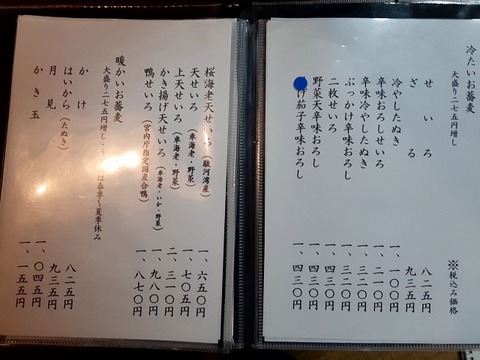 冷たいお蕎麦
大盛り二七五円増し
※税込み価格
せいろ 八二五円
ざる 九三五円
冷やしたぬき 一、一〇〇円
辛味おろしせいろ 一、二一〇円
辛味冷やしたぬき 一、三二〇円
ぶっかけ辛味おろし 一、三二〇円
二枚せいろ
野菜天辛味おろし 一、四三〇円
げ茄子辛味おろし 一、四三〇円
桜海老天せいろ(駿河湾産) 一、六五〇円
天せいろ(車海老・野菜) 一、七〇五円
上天せいろ(車海老・野菜) 二、三一〇円
かき揚げ天せいろ(車海老・いか・野菜) 一、九八〇円
鴨せいろ(宮内庁指定国産合鴨) 一、八七〇円
暖かいお蕎麦
大盛り二七五円増し・うどんは春季〜夏季休み
かけ 八二五円
はいから(たぬき) 九三五円
月見 一、〇四五円
かき玉 一、一五五円